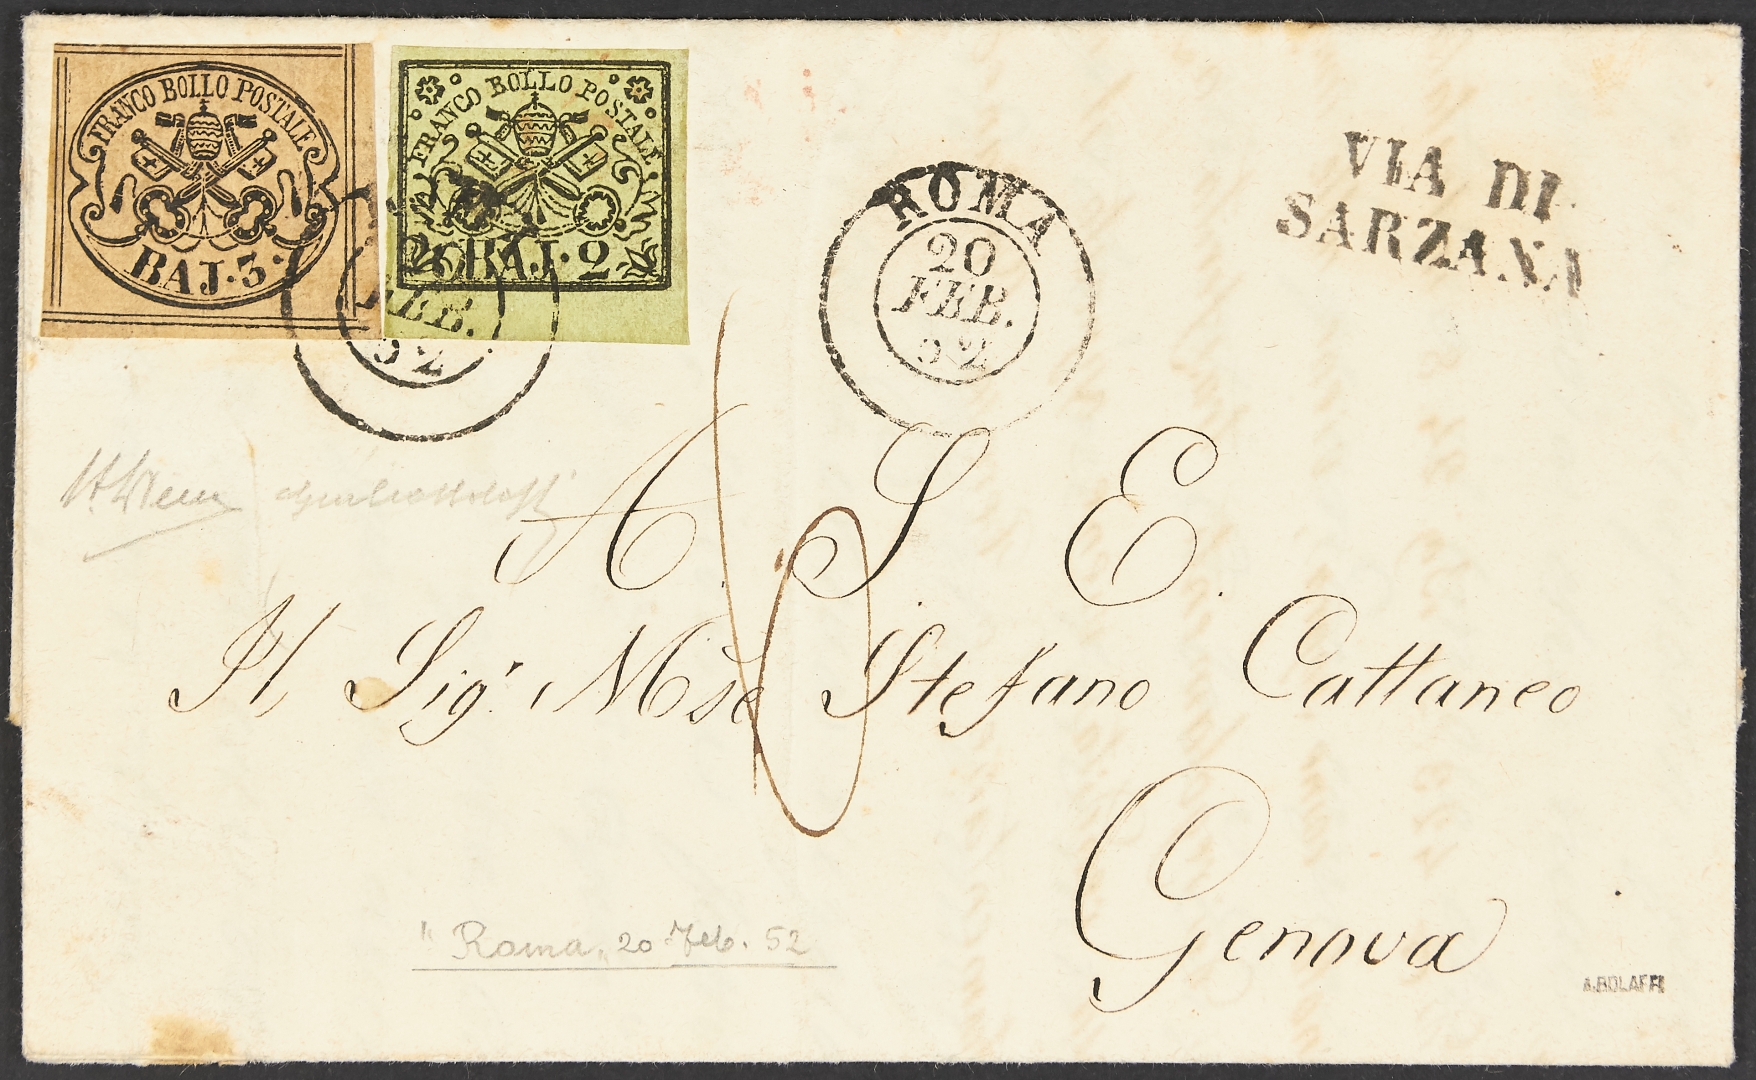 FRANCO BOLLO POSTALE
BAJ. 3.
FRANCO BOLLO POSTALE
BAJ. 2
20
FEB.
52
ROMA
20
FEB.
52
VIA DI
SARZANA
A. S. E.
Il Sigr. Mse Stefano Cattaneo
Genova
"Roma„ 20 Feb. 52
A.BOLAFFI